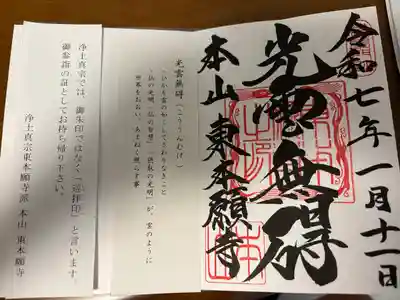 令和七年一月十一日
光雲無碍
本山東本願寺
光雲無碍(こううんむげ)
「ひかり雲の如くにしてさわりなきこと」
仏の光明・仏の智慧・「摂取の光明」が、雲のように
世界をおおい、あまねく照らす事
浄土真宗では、御朱印ではなく「巡拝印」と言います。
御参詣の証としてお持ち帰り下さい。
浄土真宗東本願寺派 本山 東本願寺